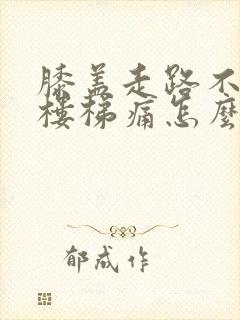 膝盖走路不
楼梯痛怎麼
郁成作